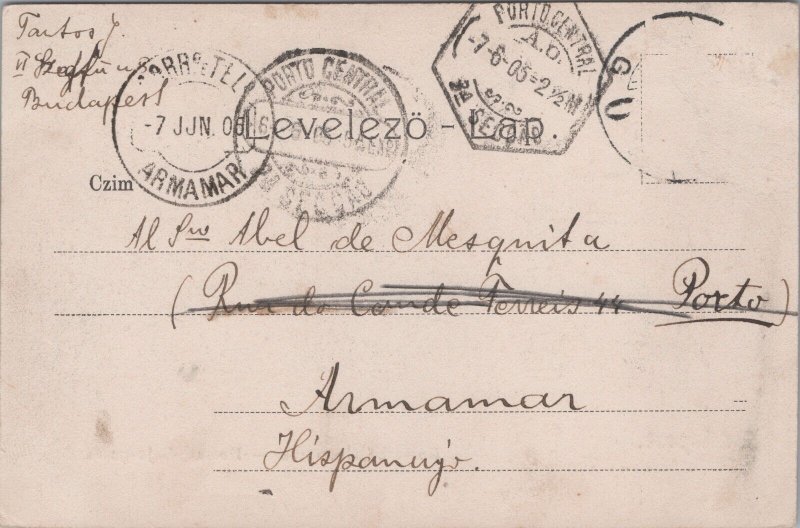 Tartos J.
VI
Budapest
CORR E TEL
-7 JUN. 05
ARMAMAR
PORTO CENTRAL
3ª SECÇÃO
PORTO.CENTRAL
-7-6-05=2½M
3ª SECÇÃO
G U
Levelező - Lap.
Czim
Al Snr Abel de Mesquita
(Rua do Conde Ferreis 44 Porto)
Armamar